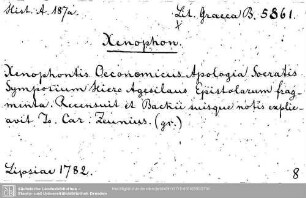 Hist. A. 187a.
Lit. Graeca B. 5861.
Xenophon.
Xenophontis Oeconomicus Apologia Socratis
Symposium Hiero Agesilaus Epistolarum frag-
minta. Recensuit et Bachii suisque notis explic-
avit Io. Car: Zeunius. (gr.)
Lipsiae 1782.
8
Sächsische Landesbibliothek -
Staats- und Universitätsbibliothek Dresden